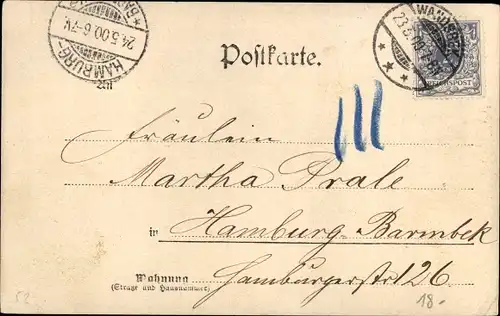 HAMBURG
24.5.00.6-7V.
WANDSBEK
23.5
REICHSPOST
Postkarte.
III
Fräulein
Martha Prale
in Hamburg-Barmbek
Wohnung Hamburgerstr 126
(Straße und Hausnummer)
52
18.-